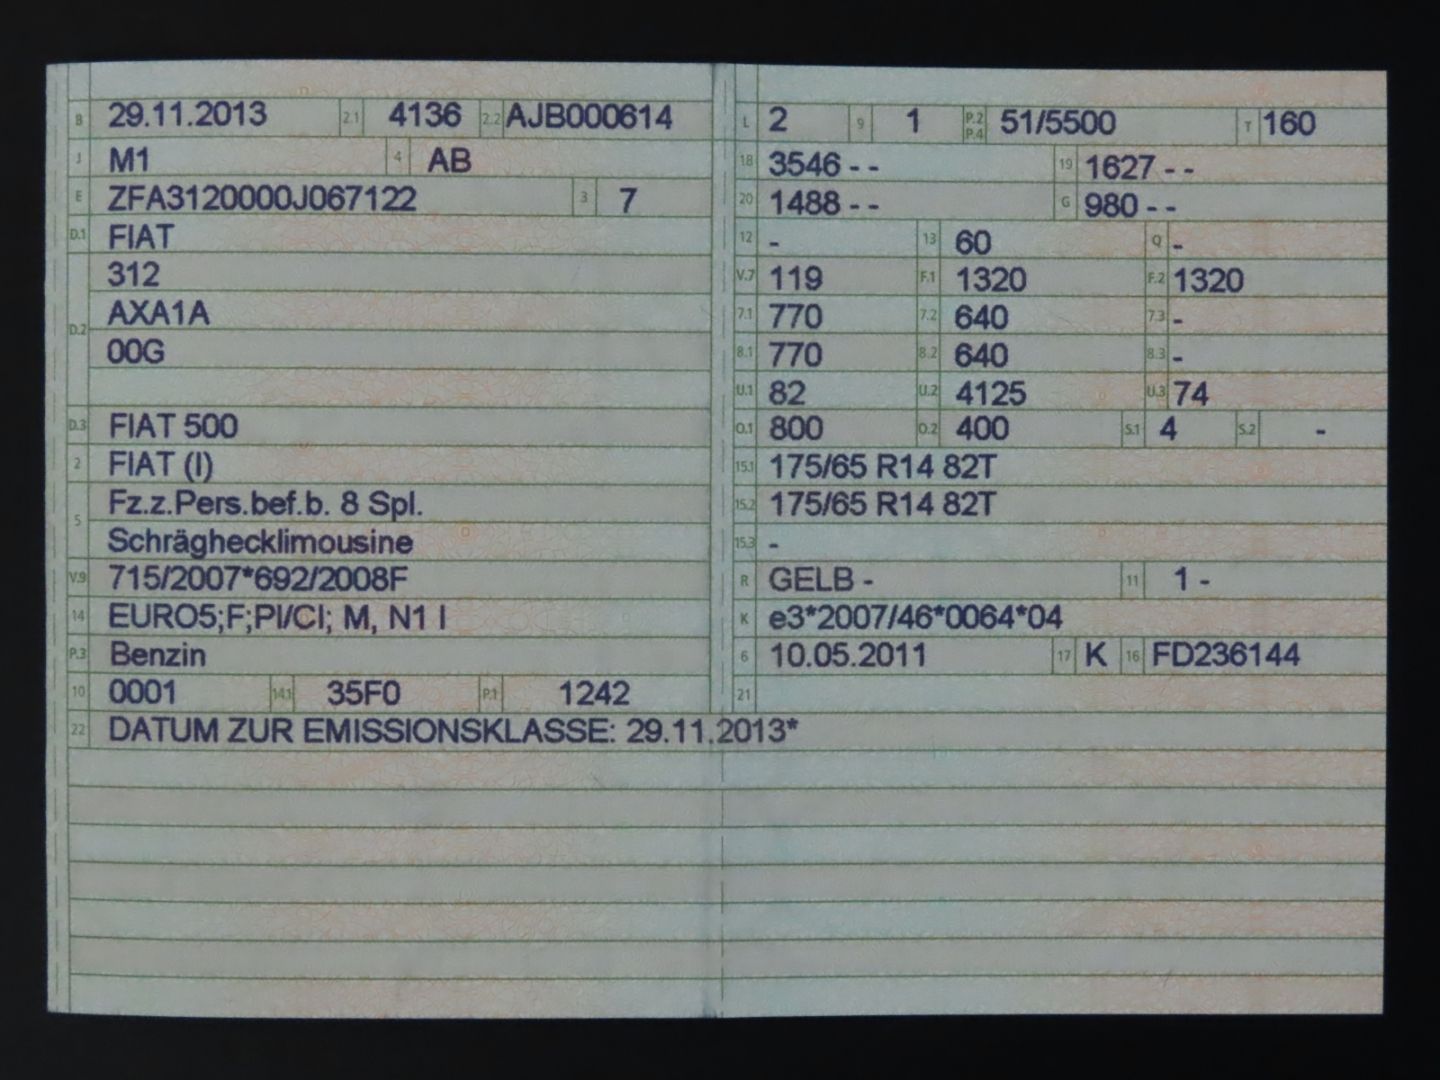 B 29.11.2013 2.1 4136 2.2 AJB000614
J M1 4 AB
E ZFA3120000J067122 3 7
D.1 FIAT
312
D.2 AXA1A
00G
D.3 FIAT 500
2 FIAT (I)
5 Fz.z.Pers.bef.b. 8 Spl.
Schräghecklimousine
V.9 715/2007*692/2008F
14 EURO5;F;PI/CI; M, N1 I
P.3 Benzin
10 0001 14.1 35F0 P.1 1242
L 2 9 1 P.2 P.4 51/5500 T 160
18 3546 - - 19 1627 - -
20 1488 - - G 980 - -
12 - 13 60 Q -
V.7 119 F.1 1320 F.2 1320
7.1 770 7.2 640 7.3 -
8.1 770 8.2 640 8.3 -
U.1 82 U.2 4125 U.3 74
O.1 800 O.2 400 S.1 4 S.2 -
15.1 175/65 R14 82T
15.2 175/65 R14 82T
15.3 -
R GELB - 11 1 -
K e3*2007/46*0064*04
6 10.05.2011 17 K 16 FD236144
21
22 DATUM ZUR EMISSIONSKLASSE: 29.11.2013*